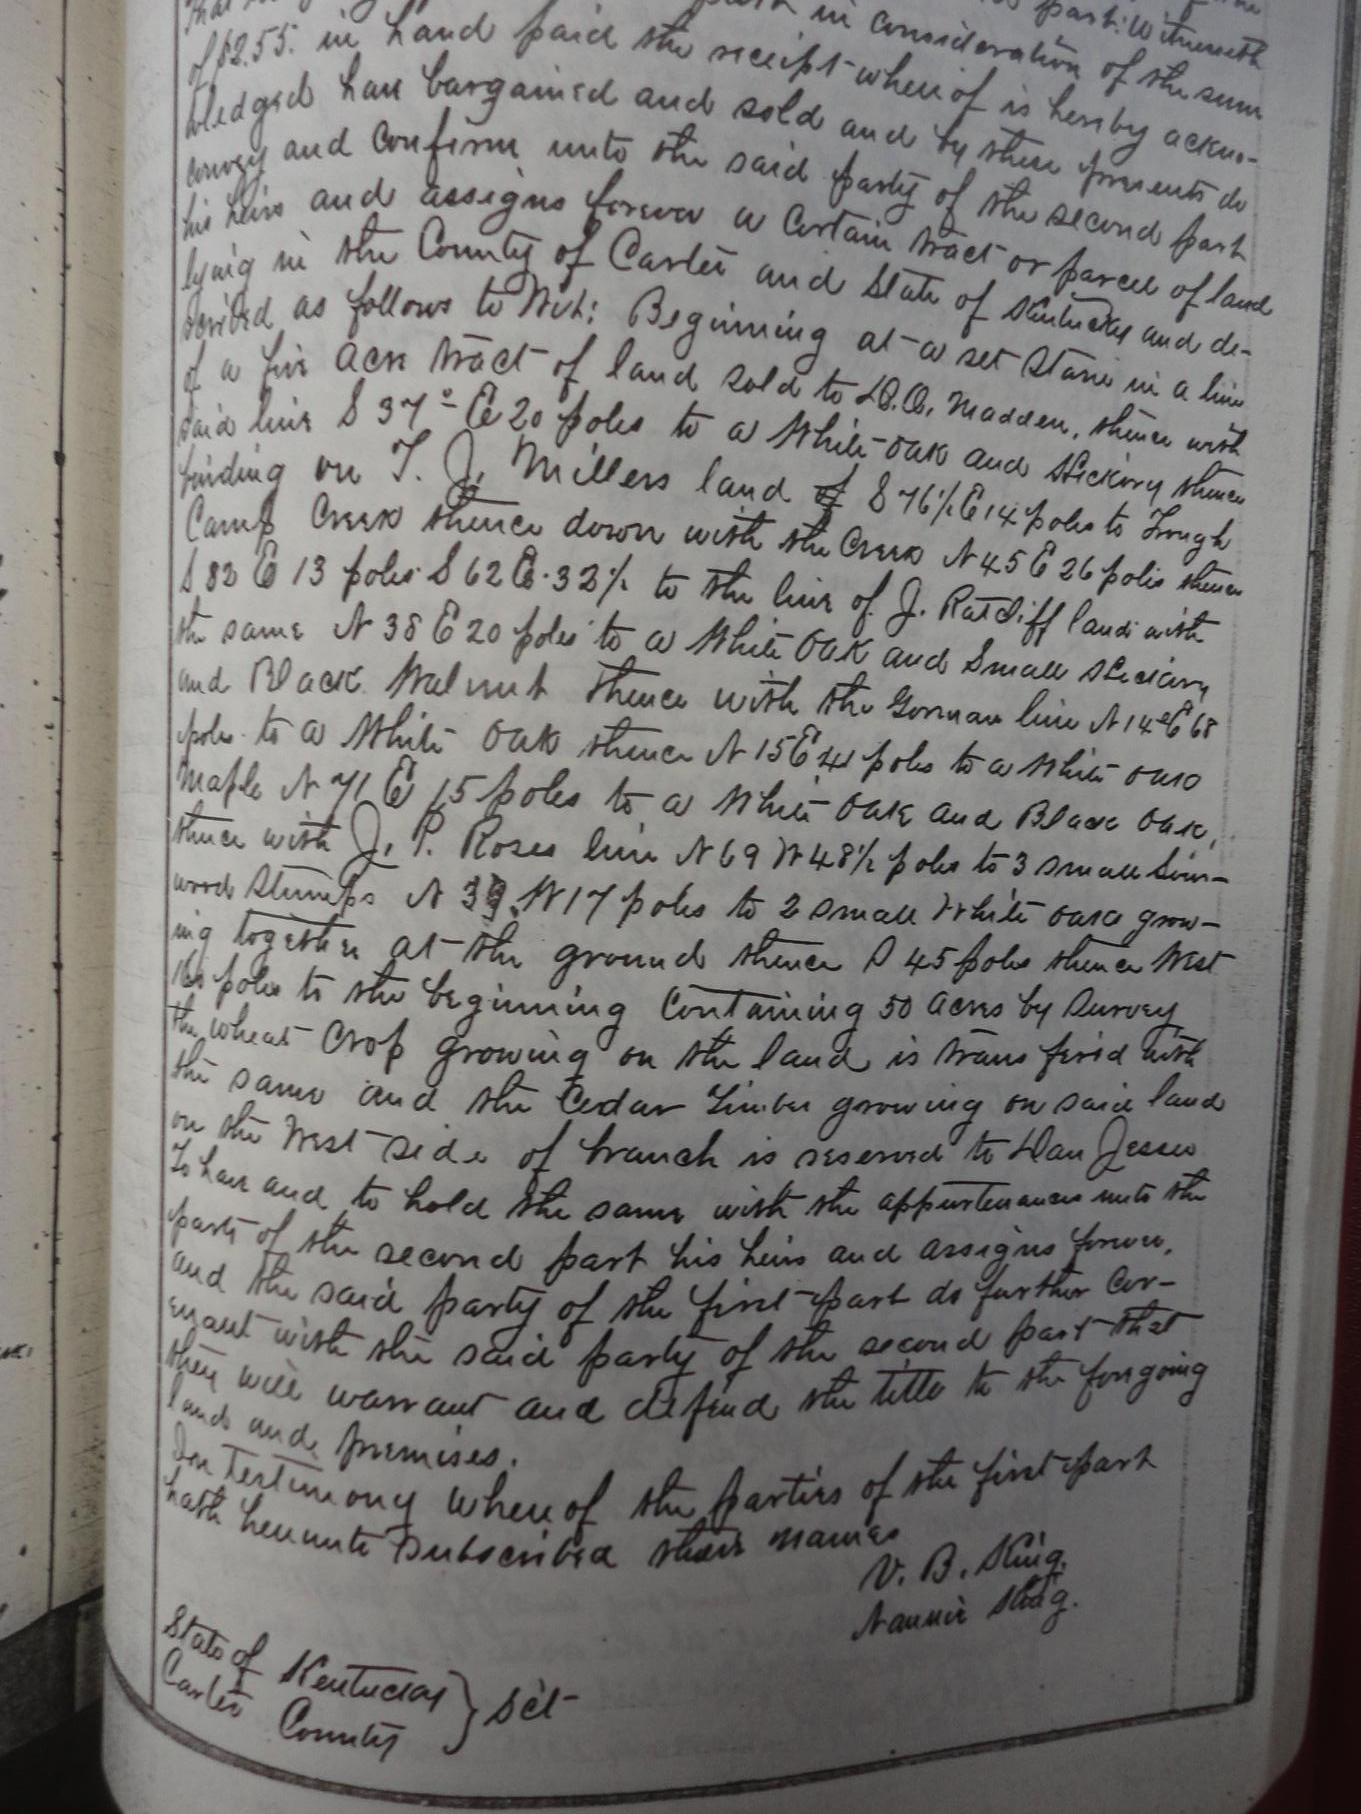 part in consideration of the sum
of $255. in hand paid the receipt whereof is hereby ackno-
wledged have bargained and sold and by these presents do
convey and confirm unto the said party of the second part
his heirs and assigns forever a certain tract or parcel of land
lying in the County of Carter and State of Kentucky and de-
scribed as follows to Wit: Beginning at a set stone in a line
of a five acre tract of land sold to D.A. Madden, thence with
said line S 37° E 20 poles to a White oak and Hickory thence
binding on T. J. Millers land S 76½ E 14 poles to Trough
Camp Creek thence down with the Creek N 45 E 26 poles thence
S 82 E 13 poles S 62 E. 32½ to the line of J. Ratcliff land with
the same N 38 E 20 poles to a White oak and Small Hickory
and Black Walnut thence with the Gorman line N 14 E 68
poles to a White oak thence N 15 E 41 poles to a White oak
Maple N 71 E 15 poles to a White oak and Black oak,
thence with J. P. Roses line N 69 W 48½ poles to 3 small
wood Stumps N 39 W 17 poles to 2 small White oaks grow-
ing together at the ground thence S 45 poles thence West
poles to the beginning Containing 50 acres by Survey
the wheat crop growing on the land is transfered with
the same and the Cedar Timber growing on said land
on the West side of branch is reserved to Dan Jesse
To have and to hold the same with the appurtenances unto the
party of the second part his heirs and assigns forever,
and the said party of the first part do further Cov-
enant with the said party of the second part that
they will warrant and defend the title to the forgoing
lands and premises.
In Testimony whereof the parties of the first part
hath hereunto Subscribed their names
V. B. King.
Nannie King.
State of Kentucky } Sct
Carter County